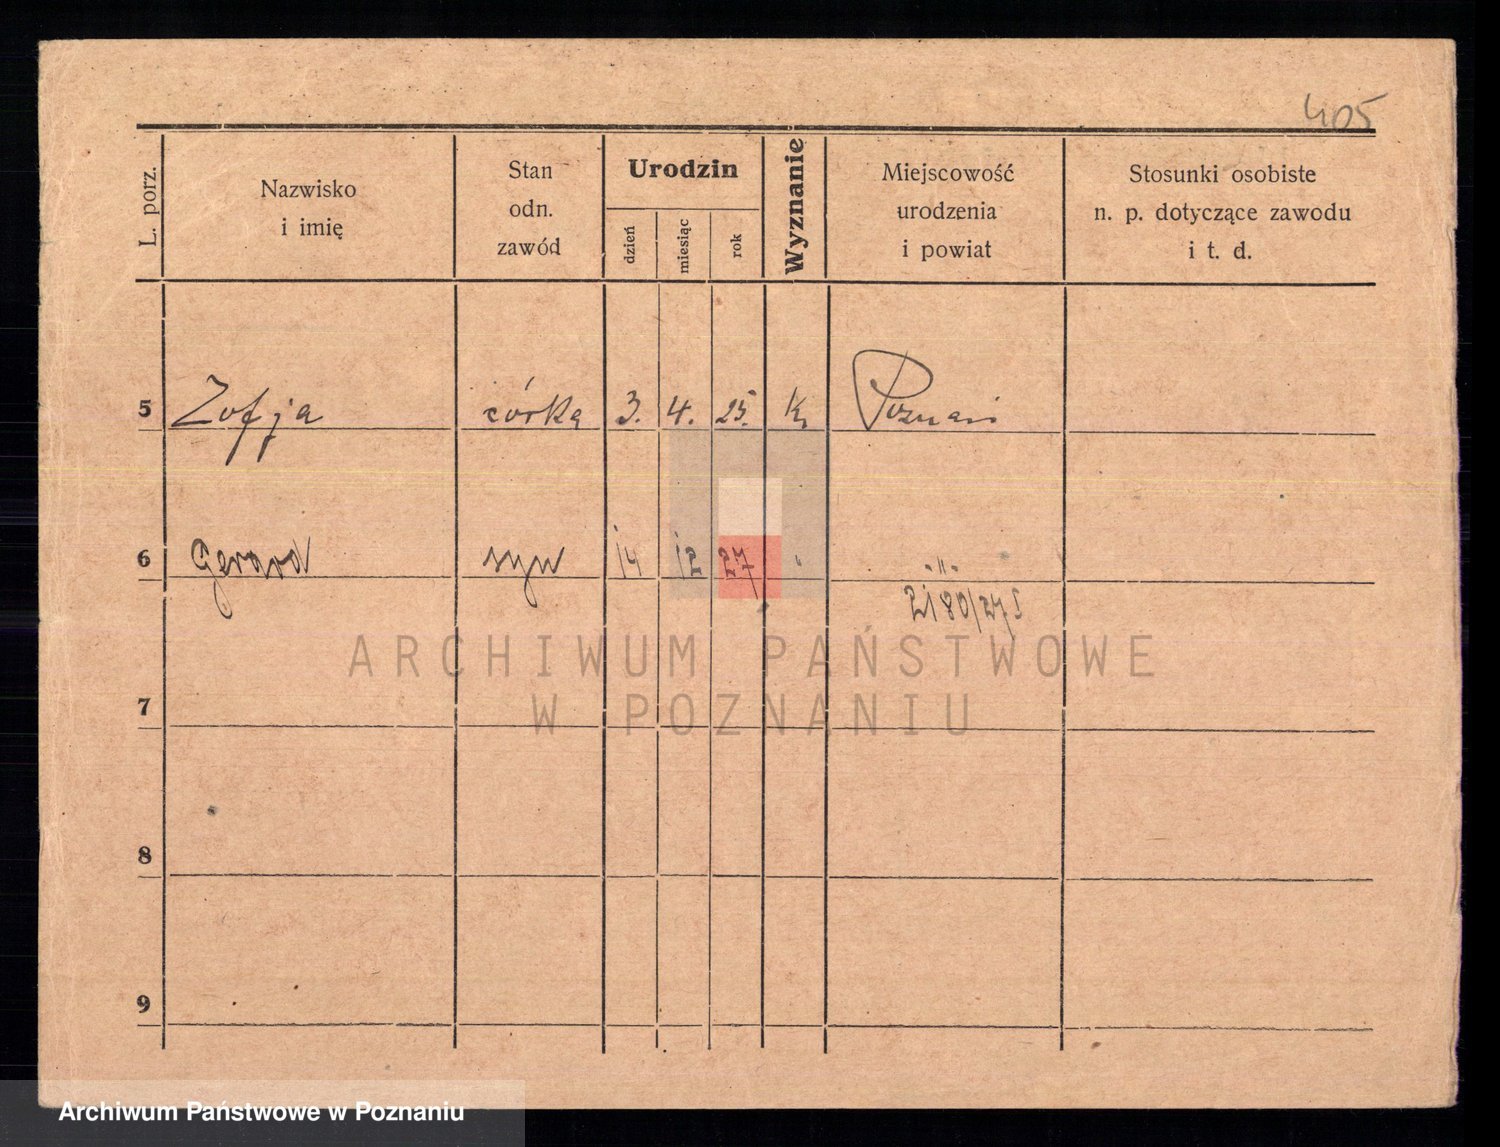 405
L. porz.
Nazwisko
i imię
Stan
odn.
zawód
Urodzin
dzień
miesiąc
rok
Wyznanie
Miejscowość
urodzenia
i powiat
Stosunki osobiste
n. p. dotyczące zawodu
i t. d.
5 Zofja córka 3. 4. 25. k. Poznań
6 Gerard syn 14 12 27 " -"-
2180/27 I
7
8
9
ARCHIWUM PAŃSTWOWE
W POZNANIU
Archiwum Państwowe w Poznaniu